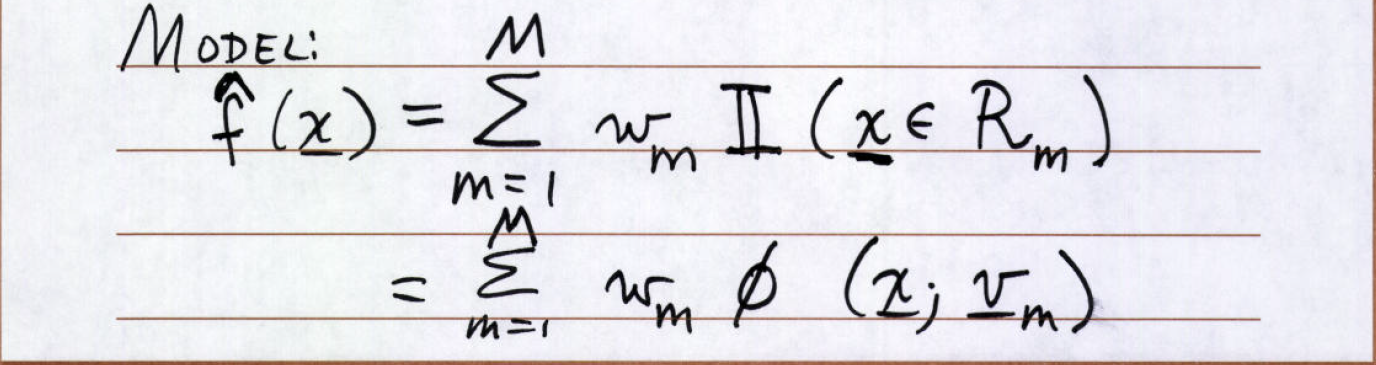 MODEL:
f̂(x̲) = ∑_{m=1}^{M} w_m 𝕀(x̲ ∈ R_m)
= ∑_{m=1}^{M} w_m ϕ(x̲; v̲_m)